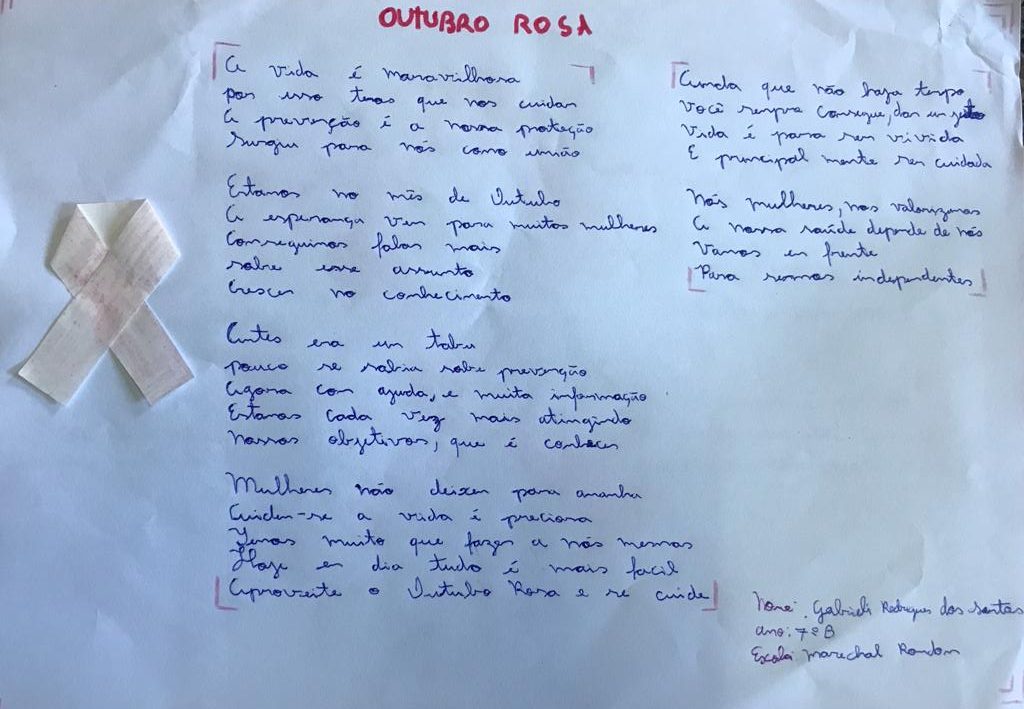 OUTUBRO ROSA
A vida é maravilhosa
por isso temos que nos cuidar
A prevenção é a nossa proteção
Surgiu para nós como união
Estamos no mês de Outubro
A esperança vem para muitas mulheres
Conseguimos falar mais
sobre esse assunto
Crescer no conhecimento
Antes era um tabu
pouco se sabia sobre prevenção
Agora com ajuda, e muita informação
Estamos cada vez mais atingindo
nossos objetivos, que é conhecer
Mulheres não deixem para amanha
Cuidem-se a vida é preciosa
Temos muito que fazer a nós mesmas
Hoje em dia tudo é mais facil
Aproveite o Outubro Rosa e se cuide
Ainda que não haja tempo
Você sempre consegue, dar um jeito
Vida é para ser vivida
E principal mente ser cuidada
Nós mulheres, nos valorizamos
A nossa saúde depende de nós
Vamos em frente
Para sermos independentes
Nome: Gabrieli Rodrigues dos santos
ano: 7º B
Escola: marechal Rondon